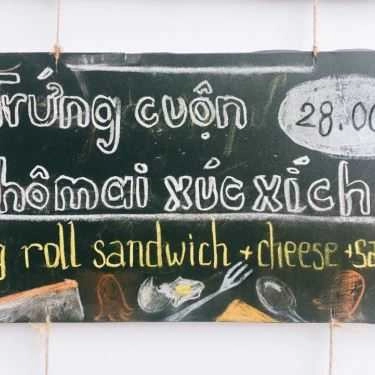 Trứng cuộn 28.00
hômai xúc xích
g roll sandwich + cheese + sa